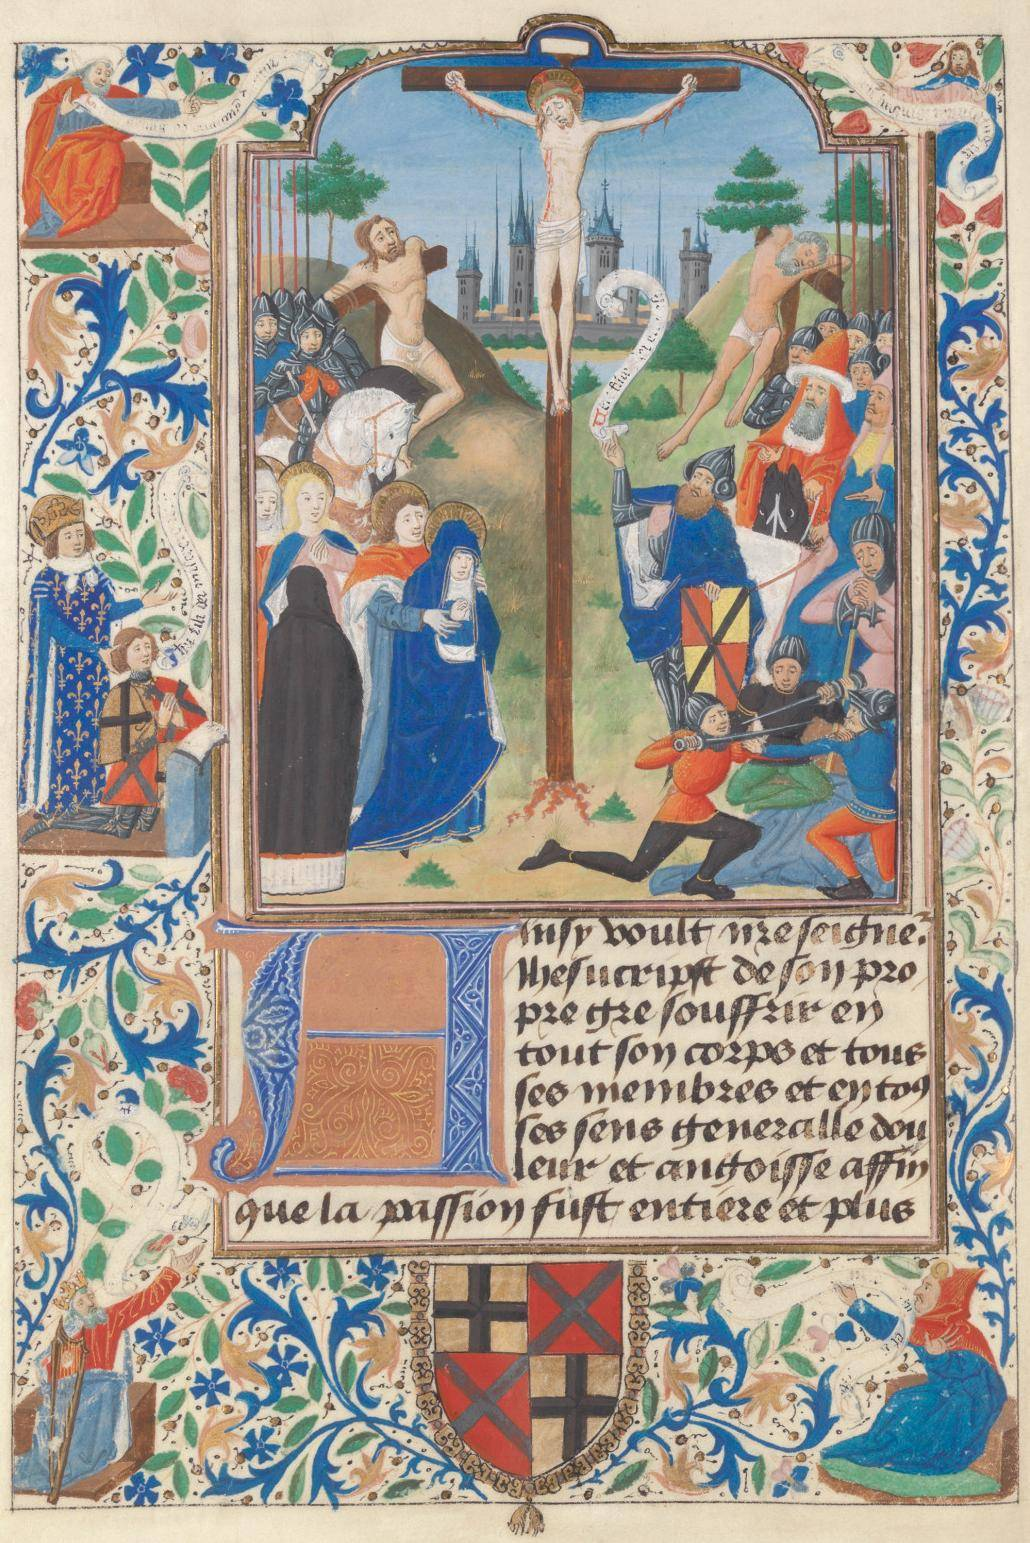 Ainsy voult nr̄e seigneʳ
Ihesucripst de son pro
pre gre souffrir en
tout son corps et tous
ses membres et en toꝯ
ses sens generalle dou
leur et angoisse affin
que la passion fust entiere et plus